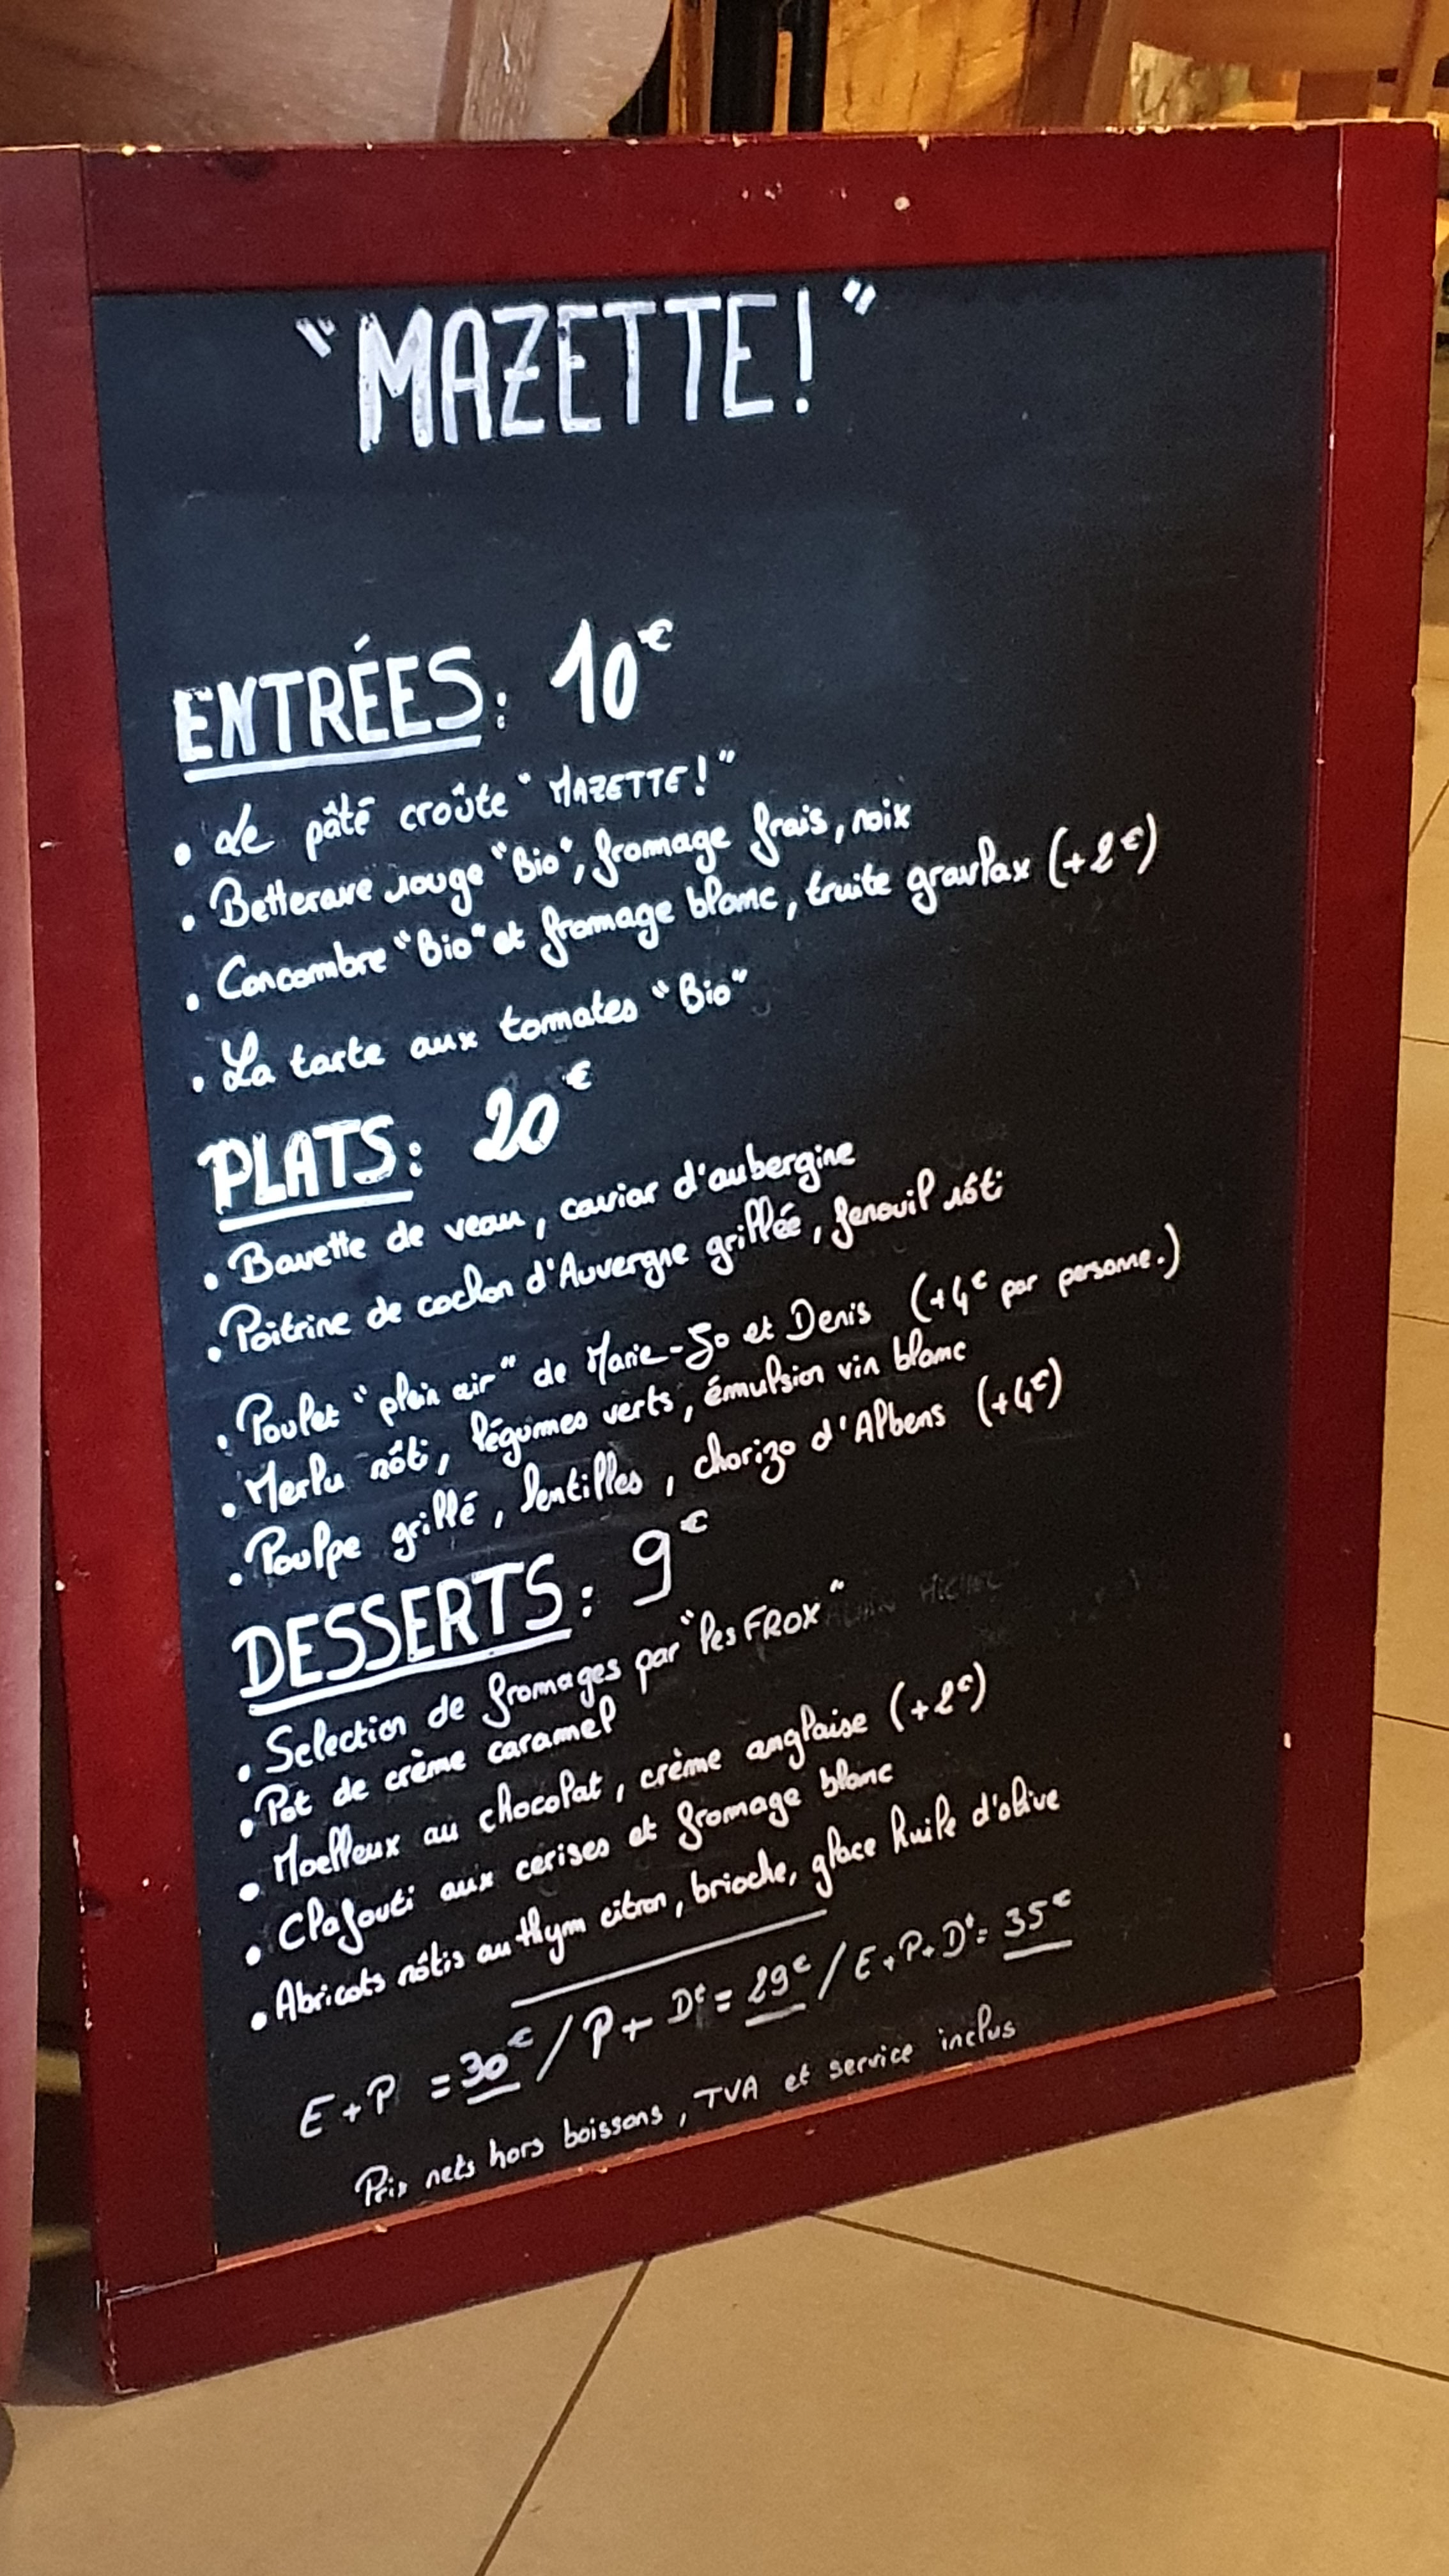 "MAZETTE!"
ENTRÉES: 10€
• Le pâté croûte "MAZETTE!"
• Betterave rouge "Bio", fromage frais, noix
• Concombre "Bio" et fromage blanc, truite gravlax (+2€)
• La tarte aux tomates "Bio"
PLATS: 20€
• Bavette de veau, caviar d'aubergine
• Poitrine de cochon d'Auvergne grillée, fenouil rôti
• Poulet "plein air" de Marie-Jo et Denis (+4€ par personne.)
• Merlu rôti, légumes verts, émulsion vin blanc
• Poulpe grillé, lentilles, chorizo d'Albens (+4€)
DESSERTS: 9€
• Selection de fromages par "les FROX"
• Pot de crème caramel
• Moelleux au chocolat, crème anglaise (+2€)
• Clafouti aux cerises et fromage blanc
• Abricots rôtis au thym citron, brioche, glace huile d'olive
E+P = 30€ / P+Dt = 29€ / E+P+Dt = 35€
Prix nets hors boissons, TVA et service inclus